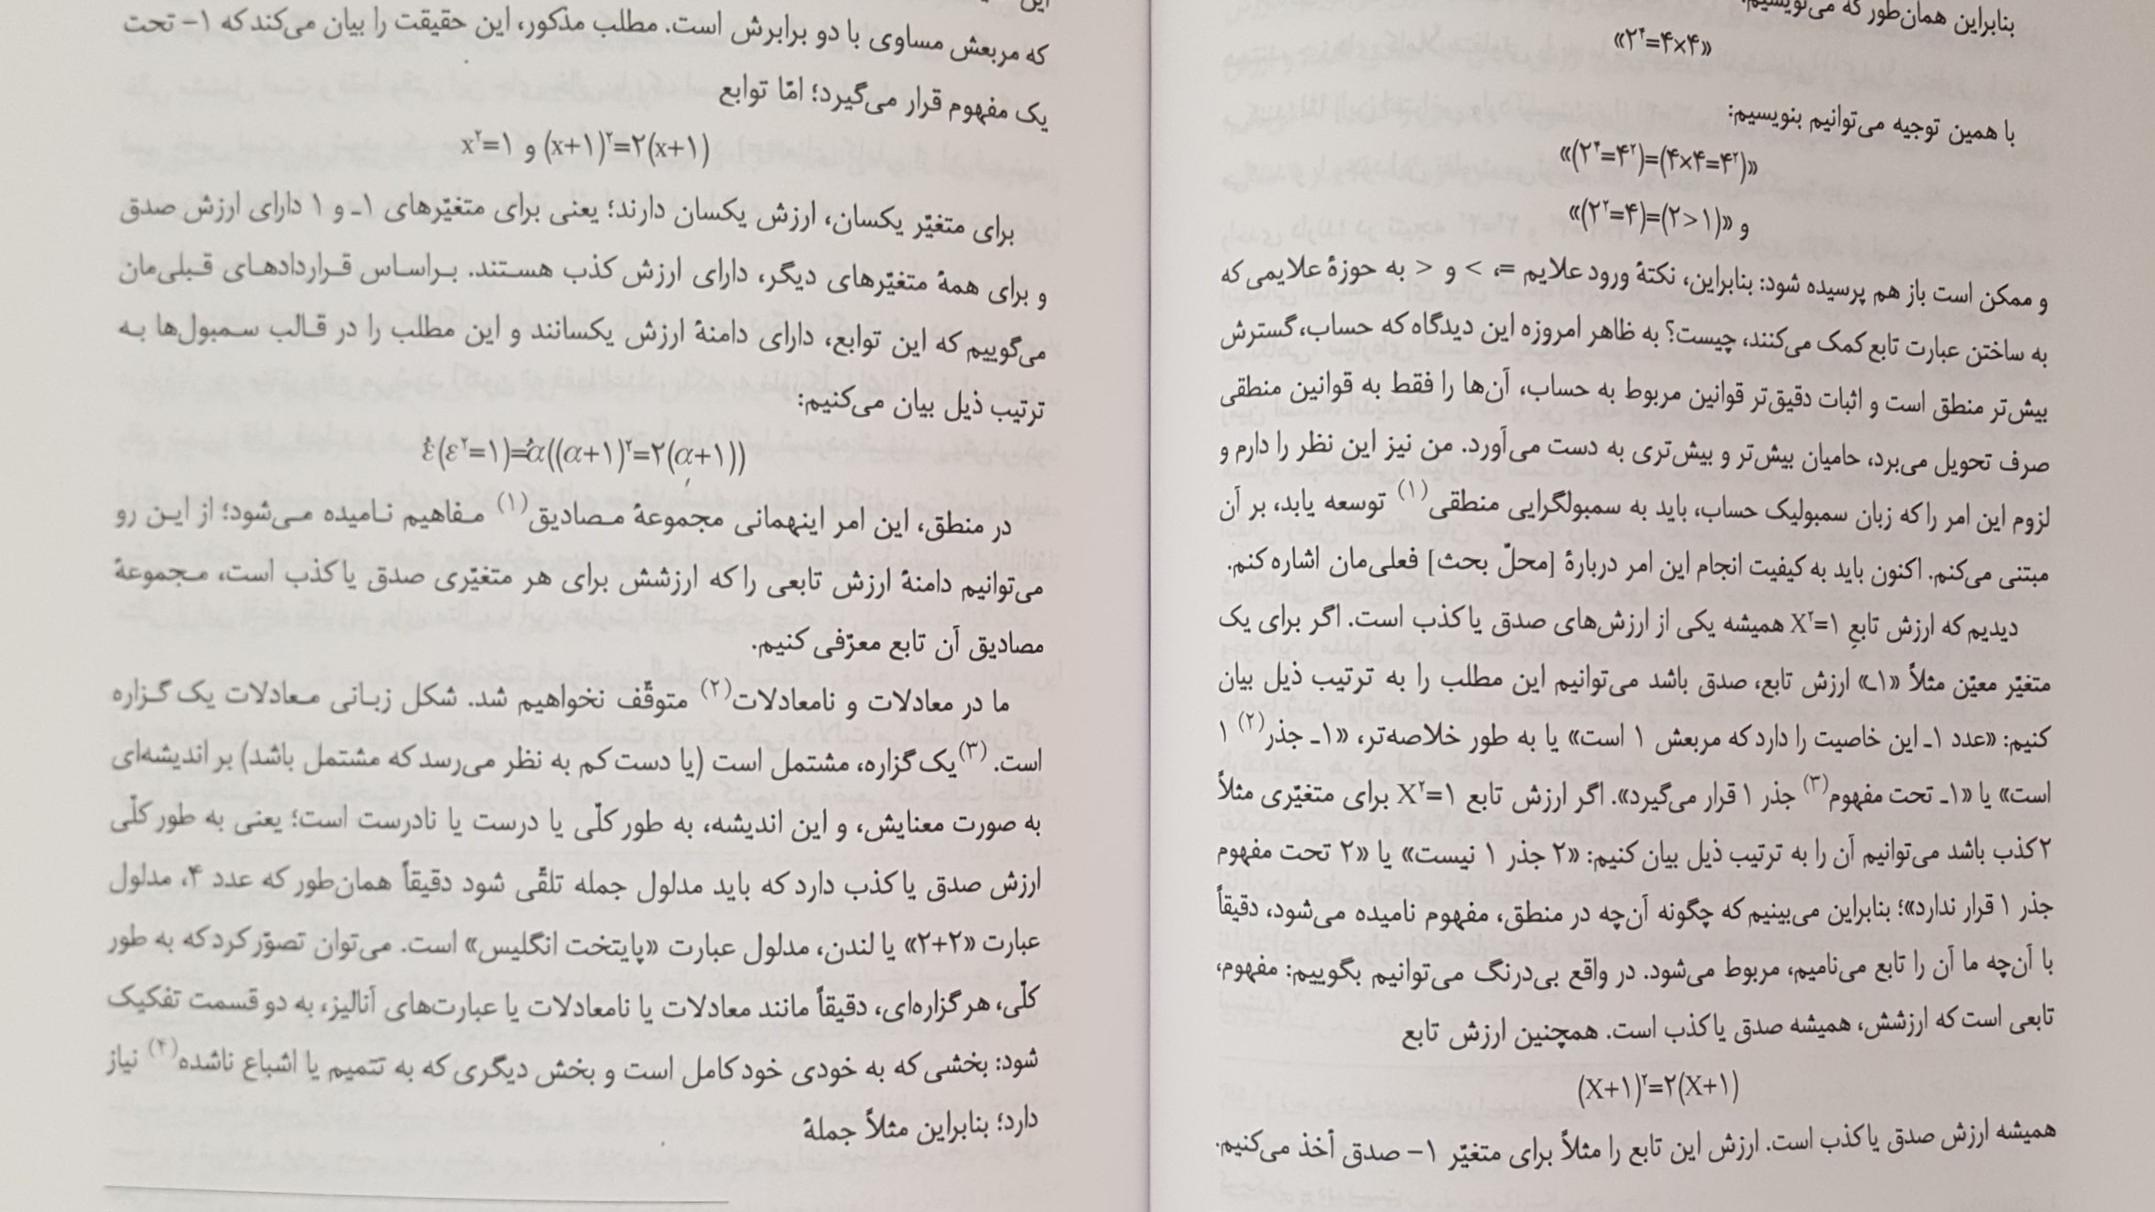 بنابراین همان‌طور که می‌نویسیم:
«۲^۴=۴×۴»
با همین توجیه می‌توانیم بنویسیم:
«(۲^۴=۴^۲)=(۴×۴=۴^۲)»
و «(۲^۲=۴)=(۲>۱)»
و ممکن است باز هم پرسیده شود: بنابراین، نکتهٔ ورود علایم =، > و < به حوزهٔ علایمی که
به ساختن عبارت تابع کمک می‌کنند، چیست؟ به ظاهر امروزه این دیدگاه که حساب، گسترش
بیش‌تر منطق است و اثبات دقیق‌تر قوانین مربوط به حساب، آن‌ها را فقط به قوانین منطقی
صرف تحویل می‌برد، حامیان بیش‌تر و بیش‌تری به دست می‌آورد. من نیز این نظر را دارم و
لزوم این امر را که زبان سمبولیک حساب، باید به سمبولگرایی منطقی(۱) توسعه یابد، بر آن
مبتنی می‌کنم. اکنون باید به کیفیت انجام این امر دربارهٔ [محلّ بحث] فعلی‌مان اشاره کنم.
دیدیم که ارزش تابعِ X^۲=۱ همیشه یکی از ارزش‌های صدق یا کذب است. اگر برای یک
متغیّر معیّن مثلاً «۱ـ» ارزش تابع، صدق باشد می‌توانیم این مطلب را به ترتیب ذیل بیان
کنیم: «عدد ۱ـ این خاصیت را دارد که مربعش ۱ است» یا به طور خلاصه‌تر، «۱ـ جذر(۲) ۱
است» یا «۱ـ تحت مفهوم(۳) جذر ۱ قرار می‌گیرد». اگر ارزش تابع X^۲=۱ برای متغیّری مثلاً
۲ کذب باشد می‌توانیم آن را به ترتیب ذیل بیان کنیم: «۲ جذر ۱ نیست» یا «۲ تحت مفهوم
جذر ۱ قرار ندارد»؛ بنابراین می‌بینیم که چگونه آن‌چه در منطق، مفهوم نامیده می‌شود، دقیقاً
با آن‌چه ما آن را تابع می‌نامیم، مربوط می‌شود. در واقع بی‌درنگ می‌توانیم بگوییم: مفهوم،
تابعی است که ارزشش، همیشه صدق یا کذب است. همچنین ارزش تابع
(X+۱)^۲=۲(X+۱)
همیشه ارزش صدق یا کذب است. ارزش این تابع را مثلاً برای متغیّر ۱– صدق أخذ می‌کنیم.
که مربعش مساوی با دو برابرش است. مطلب مذکور، این حقیقت را بیان می‌کند که ۱– تحت
یک مفهوم قرار می‌گیرد؛ امّا توابع
x^۲=۱ و (x+۱)^۲=۲(x+۱)
برای متغیّر یکسان، ارزش یکسان دارند؛ یعنی برای متغیّرهای ۱ـ و ۱ دارای ارزش صدق
و برای همهٔ متغیّرهای دیگر، دارای ارزش کذب هستند. براساس قراردادهای قبلی‌مان
می‌گوییم که این توابع، دارای دامنهٔ ارزش یکسانند و این مطلب را در قالب سمبول‌ها به
ترتیب ذیل بیان می‌کنیم:
έ(ε^۲=۱)=ά((α+۱)^۲=۲(α+۱))
در منطق، این امر اینهمانی مجموعهٔ مصادیق(۱) مفاهیم نامیده می‌شود؛ از این رو
می‌توانیم دامنهٔ ارزش تابعی را که ارزشش برای هر متغیّری صدق یا کذب است، مجموعهٔ
مصادیق آن تابع معرّفی کنیم.
ما در معادلات و نامعادلات(۲) متوقّف نخواهیم شد. شکل زبانی معادلات یک گزاره
است.(۳) یک گزاره، مشتمل است (یا دست کم به نظر می‌رسد که مشتمل باشد) بر اندیشه‌ای
به صورت معنایش، و این اندیشه، به طور کلّی یا درست یا نادرست است؛ یعنی به طور کلّی
ارزش صدق یا کذب دارد که باید مدلول جمله تلقّی شود دقیقاً همان‌طور که عدد ۴، مدلول
عبارت «۲+۲» یا لندن، مدلول عبارت «پایتخت انگلیس» است. می‌توان تصوّر کرد که به طور
کلّی، هر گزاره‌ای، دقیقاً مانند معادلات یا نامعادلات یا عبارت‌های آنالیز، به دو قسمت تفکیک
شود: بخشی که به خودی خود کامل است و بخش دیگری که به تتمیم یا اشباع ناشده(۴) نیاز
دارد؛ بنابراین مثلاً جملهٔ